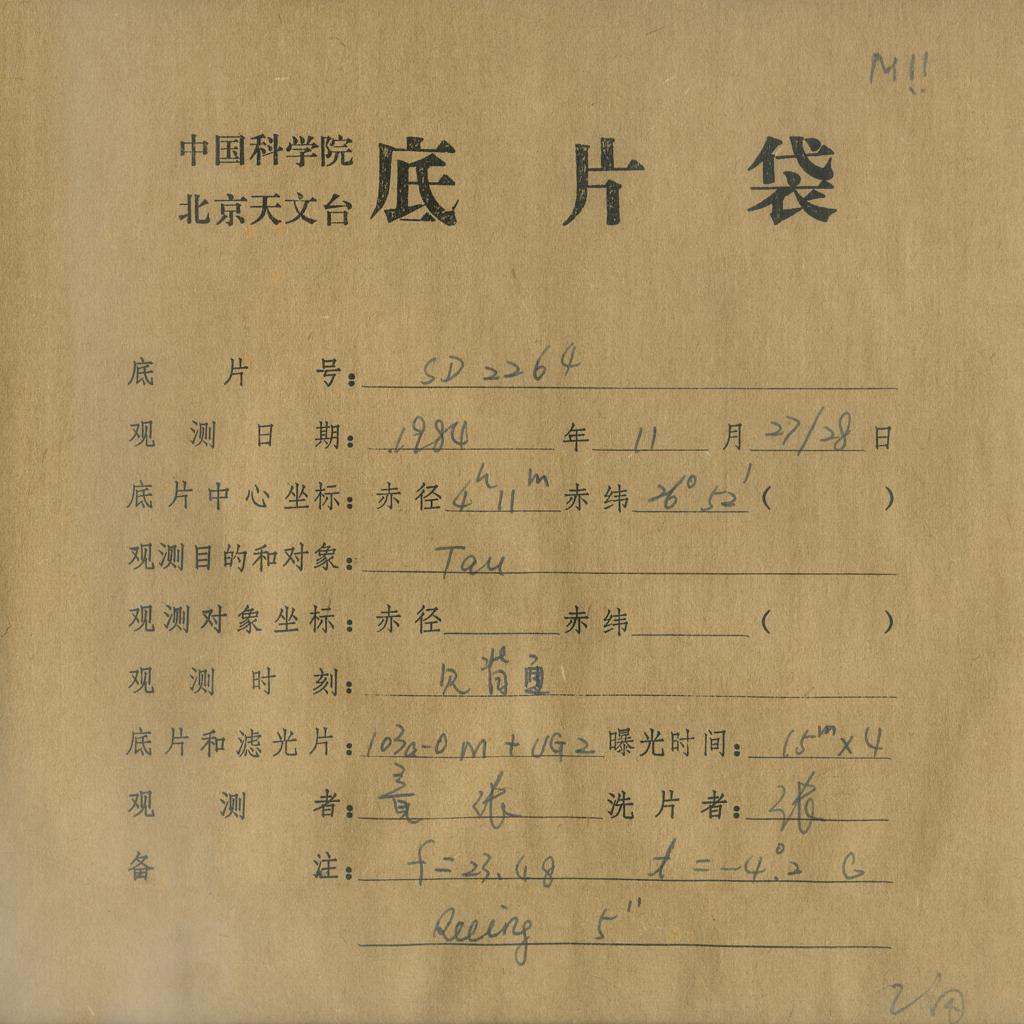 M!!
中国科学院
北京天文台
底片袋
底片号：SD 2264
观测日期：1984年11月27/28日
底片中心坐标：赤径4h11m赤纬26°52′（ ）
观测目的和对象：Tau
观测对象坐标：赤径 赤纬 （ ）
观测时刻：见背面
底片和滤光片：103a-O M + UG2 曝光时间：15m×4
观测者：张 洗片者：张
备注：f=23.48 t=-4°.2 G
Seeing 5″